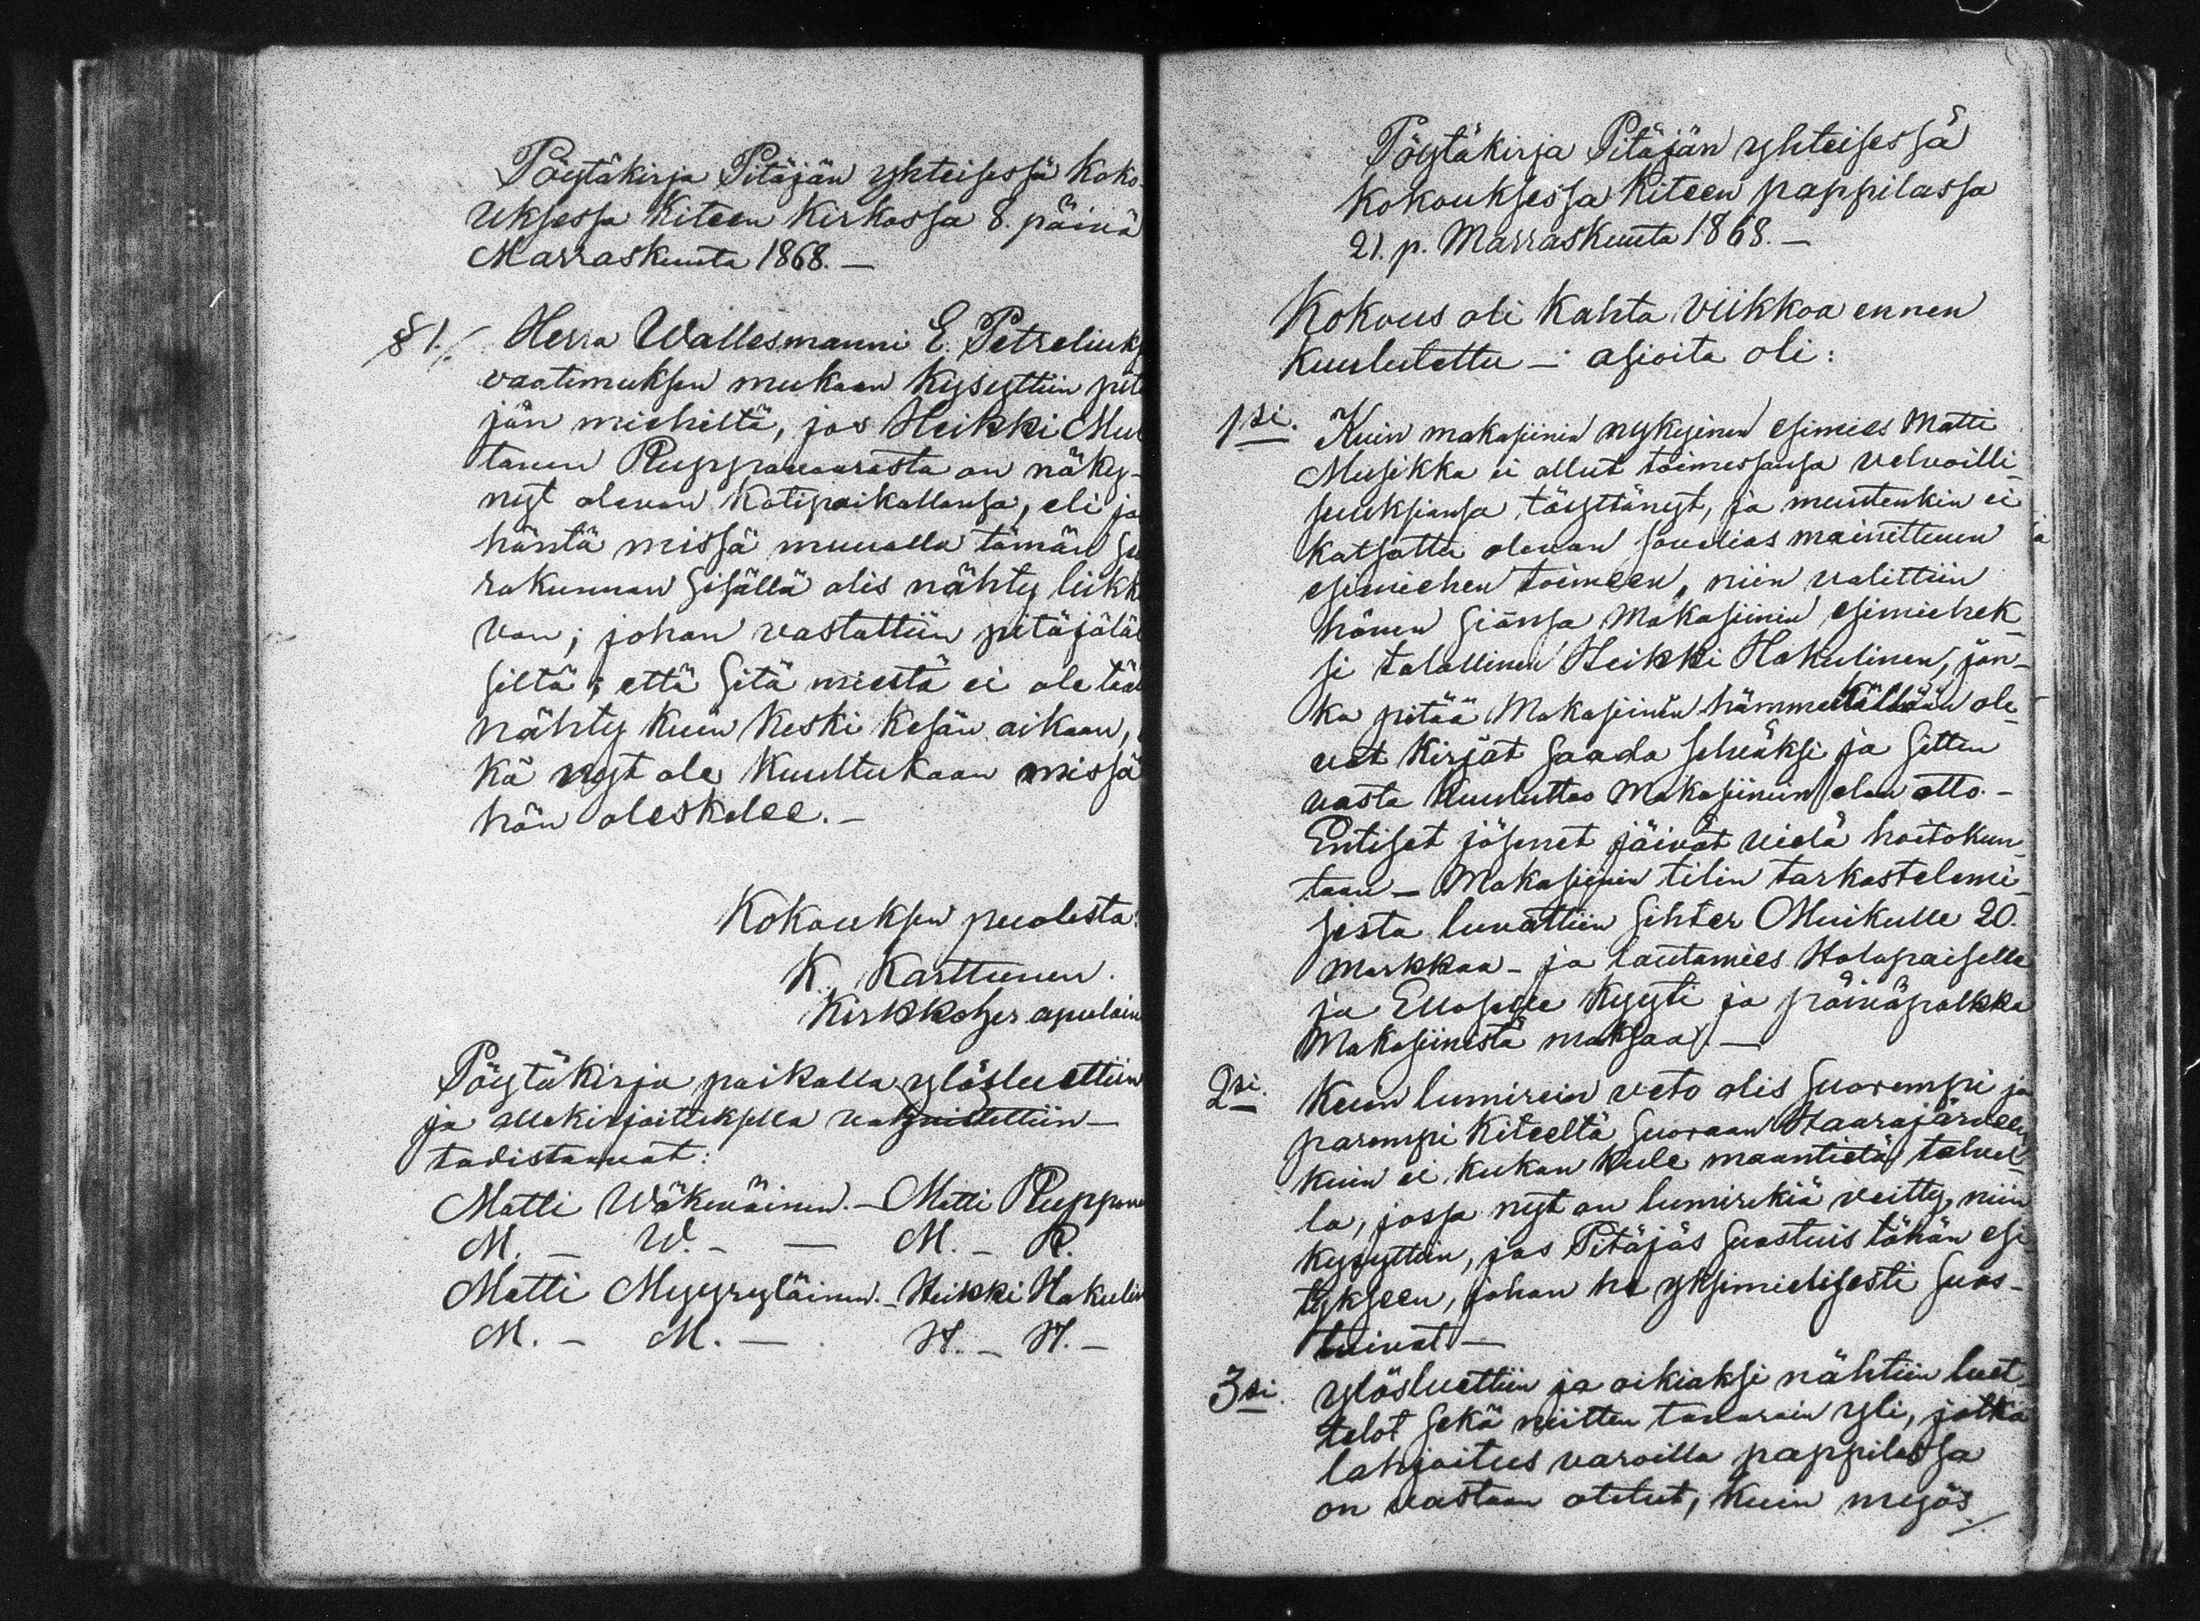 Pöytäkirja Pitäjän yhteisessä Koko-
uksessa Kiteen Kirkossa 8. päivä
Marraskuuta 1868. —
§ 1. Herra Wallesmanni E. Petreliuks
vaatimuksen mukaan kysyttiin pitä
jän miehiltä, jos Heikki Mu
tanen Ruppovaarasta on näky-
nyt olevan Kotipaikallansa, eli jo
häntä missä muualla tämän seu
rakunnan sisällä olis nähty liikk
van; johan vastattiin pitäjälä
siltä; että sitä miestä ei ole tää
nähty kuin Keski Kesän aikaan,
kä nyt ole kuultukaan missä
hän oleskelee. —
Kokouksen puolesta:
K. Karttunen.
Kirkkoher. apulain
Pöytäkirja paikalla ylösluettiin
ja allekirjoituksella vahvistettiin —
todistaavat:
Matti Wäkeväinen. — Matti Ruppone
M. — W. — — M. — R.
Matti Myyryläinen. — Heikki Hakulin
M. — M. — H. — H. —
Pöytäkirja Pitäjän yhteisessä
kokouksessa Kiteen pappilassa
21. p. Marraskuuta 1868. —
Kokous oli kahta viikkoa ennen
kuulutettu — : asioita oli:
1si. Kuin makasiinin nykyinen esimies Matti
Musikka ei ollut toimessansa velvolli-
suuksiansa täyttänyt, ja muutenkin ei
katsottu olevan sovelias mainittuun
esimiehen toimeen, niin valittiin
hänen siansa Makasiinin esimiehek-
si talollinen Heikki Hakulinen, jon-
ka pitää Makasiinin ole-
vat kirjat saada selväksi ja sitten
vasta kuuluttaa Makasiiniin elon otto. —
Entiset jäsenet jäivät vielä hoitokun-
taan — Makasiinin tilin tarkastelemi-
sesta luvattiin Sihter Muikulle 20.
markkaa — ja lautamies Holopaiselle
ja kyyti ja päiväpalkka
Makasiinista maksaa. —
2si. Kuin lumirein veto olis suorempi ja
parempi Kiteeltä suoraan Haarajärveen
kuin ei kukan kule maantietä talvel-
la, jossa nyt on lumirekiä veitty, niin
kysyttiin, jos Pitäjäs suostuis tähän esi
tykseen, johan he yksimielisesti suos-
tuivat —
3si. ylösluettiin ja oikiaksi nähtiin luet-
telot sekä niitten tavarain yli, jotka
lahjoitus varoilla pappilassa
on vastaan otetut, kuin myös